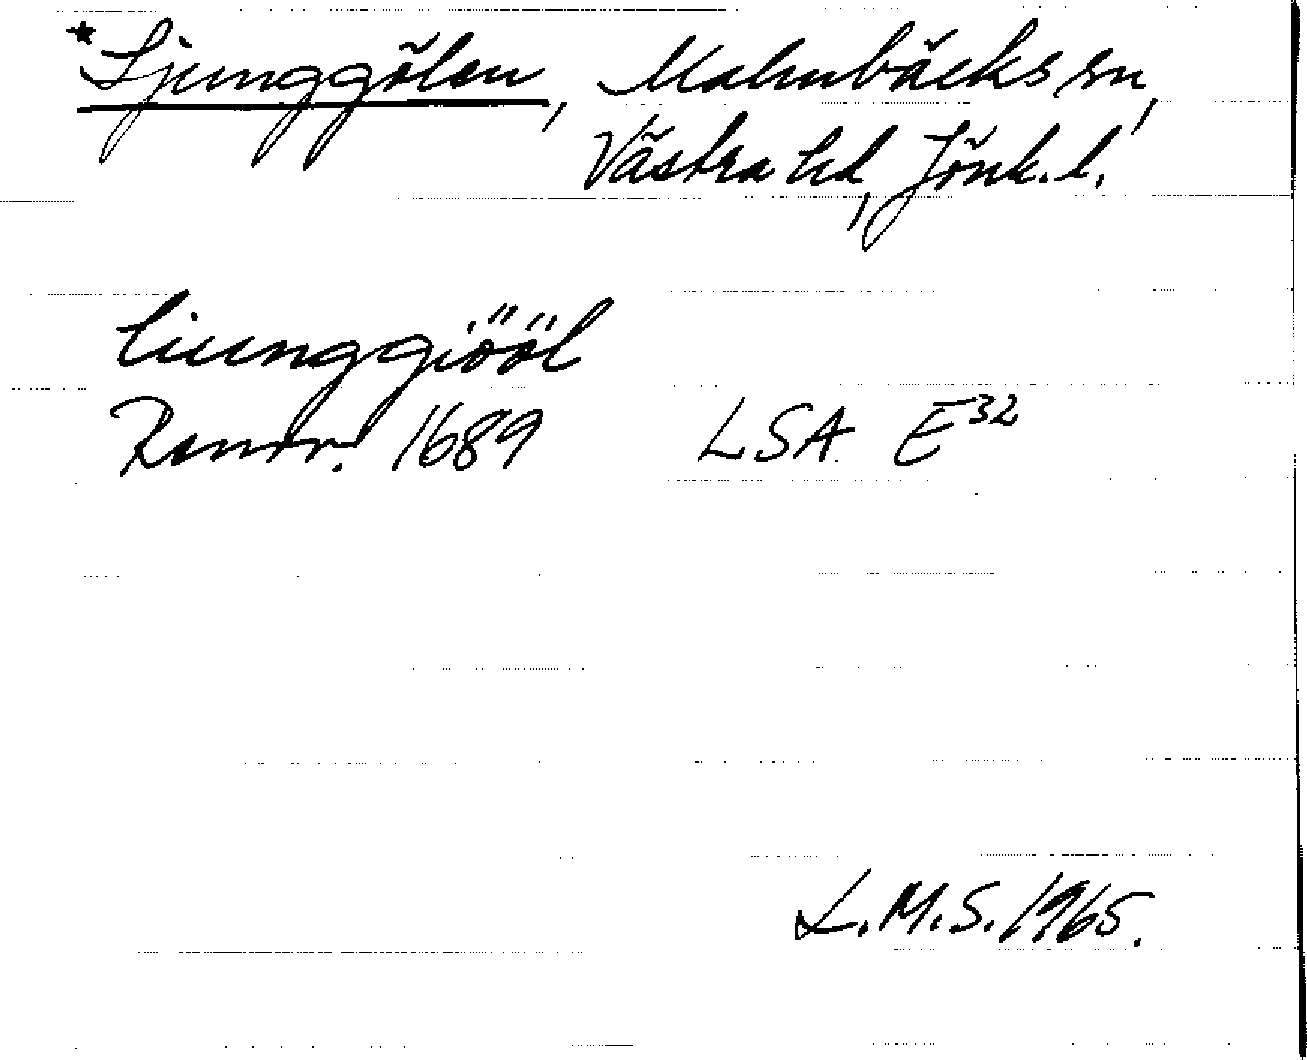 *Ljunggölen, Malmbäcks sn,
Västra hd, Jönk. l.
liunggiööl
Renov. 1689 LSA E32
L.M.S. 1965.